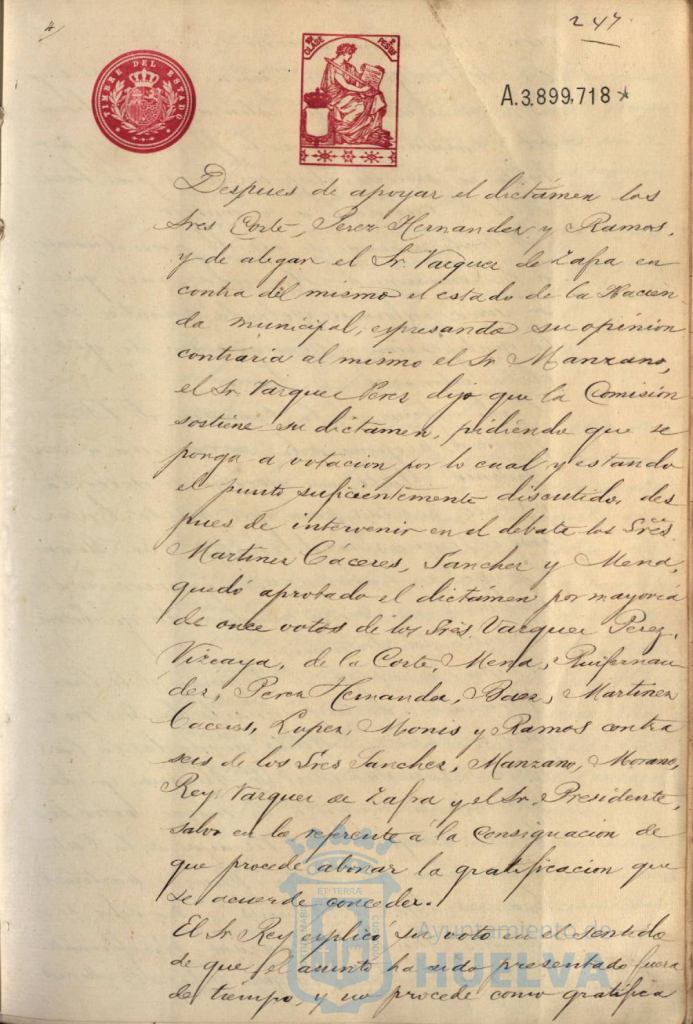 247
TIMBRE DEL ESTADO
CLASE
PESETAS
A.3.899,718
Despues de apoyar el dictámen los
Sres Corte, Perez Hernandez y Ramos,
y de alegar el Sr. Vazquez de Zafra en
contra del mismo el estado de la Hacien-
da municipal, expresando su opinion
contraria al mismo el Sr. Manzano,
el Sr. Vazquez Perez dijo que la Comisión
sostiene su dictamen, pidiendo que se
ponga á votacion por lo cual y estando
el punto suficientemente discutido, des
pues de intervenir en el debate los Sres
Martinez Cáceres, Sanchez y Mena,
quedó aprobado el dictámen por mayoria
de once votos de los Sres. Vazquez Perez,
Vizcaya, de la Corte, Mena, Ruifernan
dez, Perez Hernandez, Baez, Martinez
Caceres, Lopez, Monis y Ramos contra
seis de los Sres Sanchez, Manzano, Morano,
Rey, Vazquez de Zafra y el Sr. Presidente,
salvo en lo referente á la Consignacion de
que procede abonar la gratificacion que
se acuerde conceder.
El Sr. Rey explicó su voto en el sentido
de que el asunto ha sido presentado fuera
de tiempo, y no procede como gratifica
Ayuntamiento de
HUELVA